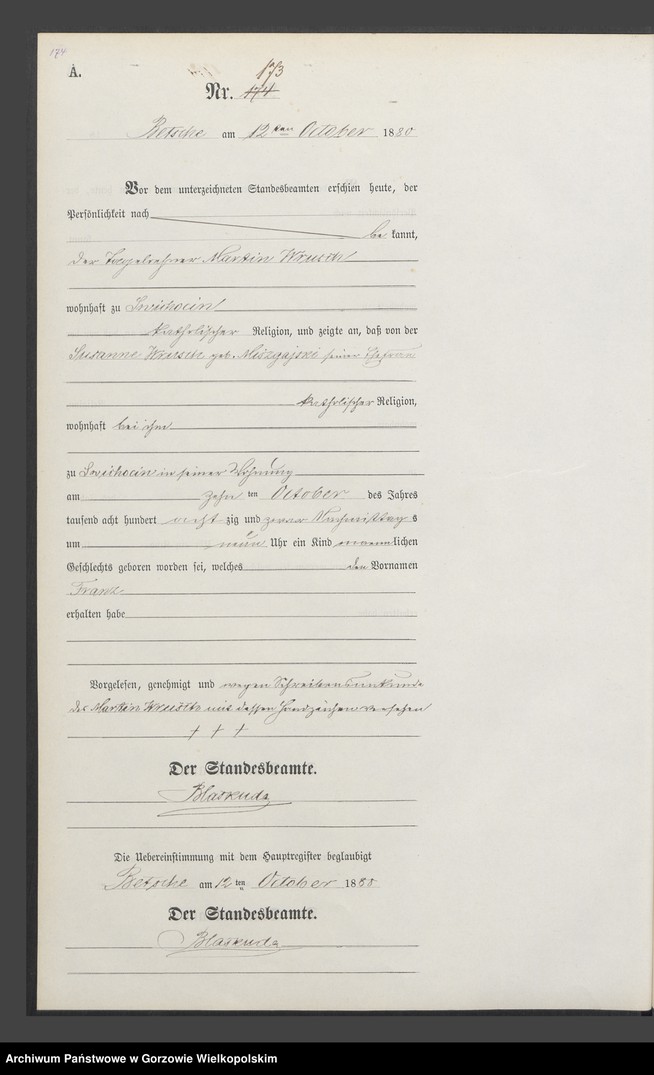 174
A.
173
Nr. 174
Betsche am 12ten October 1880
Vor dem unterzeichneten Standesbeamten erschien heute, der
Persönlichkeit nach
be kannt,
der Tagelöhner Martin Krusch
wohnhaft zu
katholischer Religion, und zeigte an, daß von der
Susanne Krusch geb. Miszgajski seiner Ehefrau
katholischer Religion,
wohnhaft bei ihm
zu in seiner Wohnung
am zehn ten October des Jahres
tausend acht hundert acht zig und zwar Nachmittag s
um neun Uhr ein Kind männlichen
Geschlechts geboren worden sei, welches den Vornamen
Franz
erhalten habe
Vorgelesen, genehmigt und wegen Schreibensunkunde
des Martin mit dessen Handzeichen versehen
+ + +
Der Standesbeamte.
Blaskuda
Die Uebereinstimmung mit dem Hauptregister beglaubigt
Betsche am 12 ten October 1880
Der Standesbeamte.
Blaskuda
Archiwum Państwowe w Gorzowie Wielkopolskim